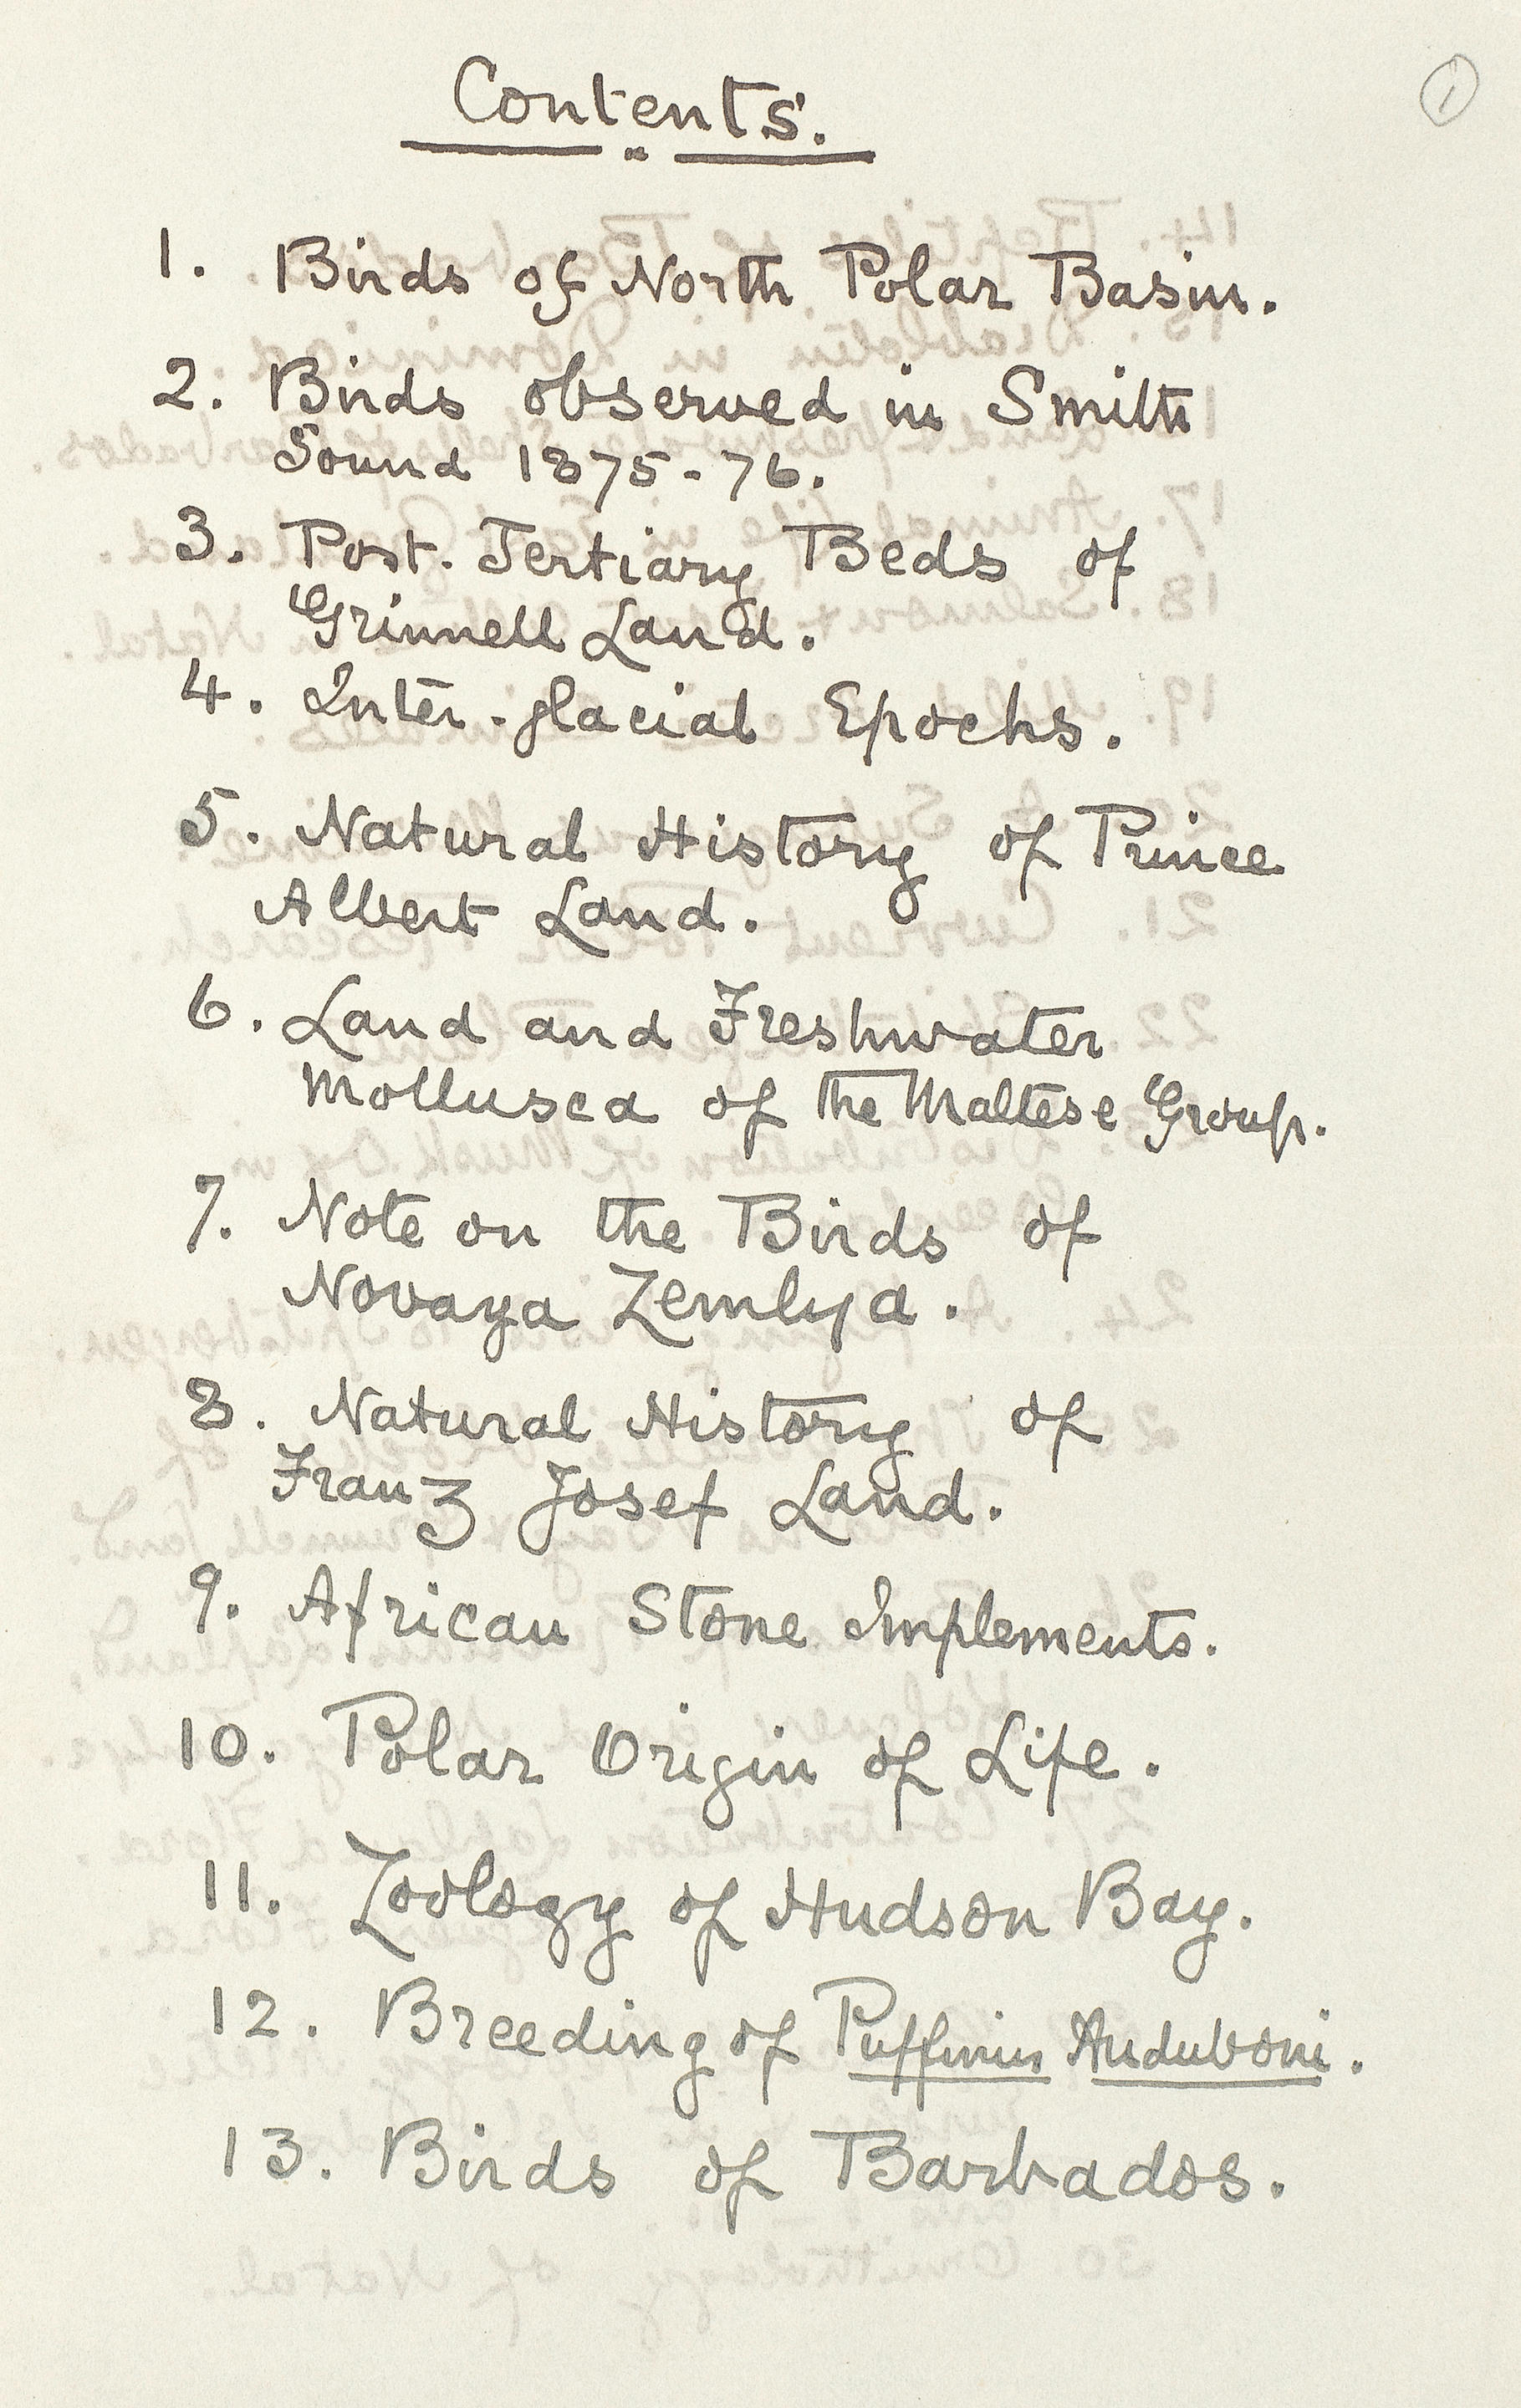 Contents.
1
1. Birds of North Polar Basin.
2. Birds observed in Smith
Sound 1875-76.
3. Post-Tertiary Beds of
Grinnell Land.
4. Inter-glacial Epochs.
5. Natural History of Prince
Albert Land.
6. Land and Freshwater
Mollusca of the Maltese Group.
7. Note on the Birds of
Novaya Zemlya.
8. Natural History of
Franz Josef Land.
9. African Stone Implements.
10. Polar Origin of Life.
11. Zoology of Hudson Bay.
12. Breeding of Puffinus Auduboni.
13. Birds of Barbados.